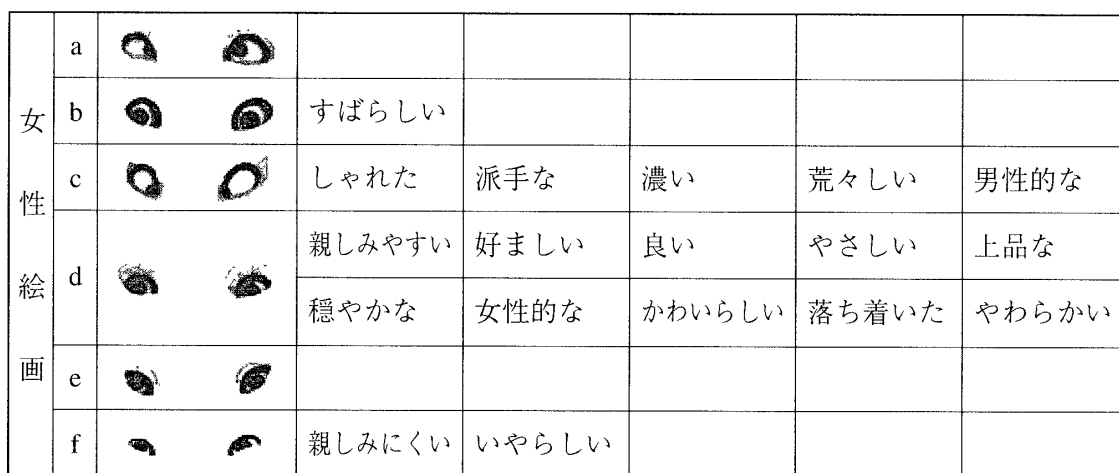 女性絵画
a
b すばらしい
c しゃれた 派手な 濃い 荒々しい 男性的な
d 親しみやすい 好ましい 良い やさしい 上品な
穏やかな 女性的な かわいらしい 落ち着いた やわらかい
e
f 親しみにくい いやらしい